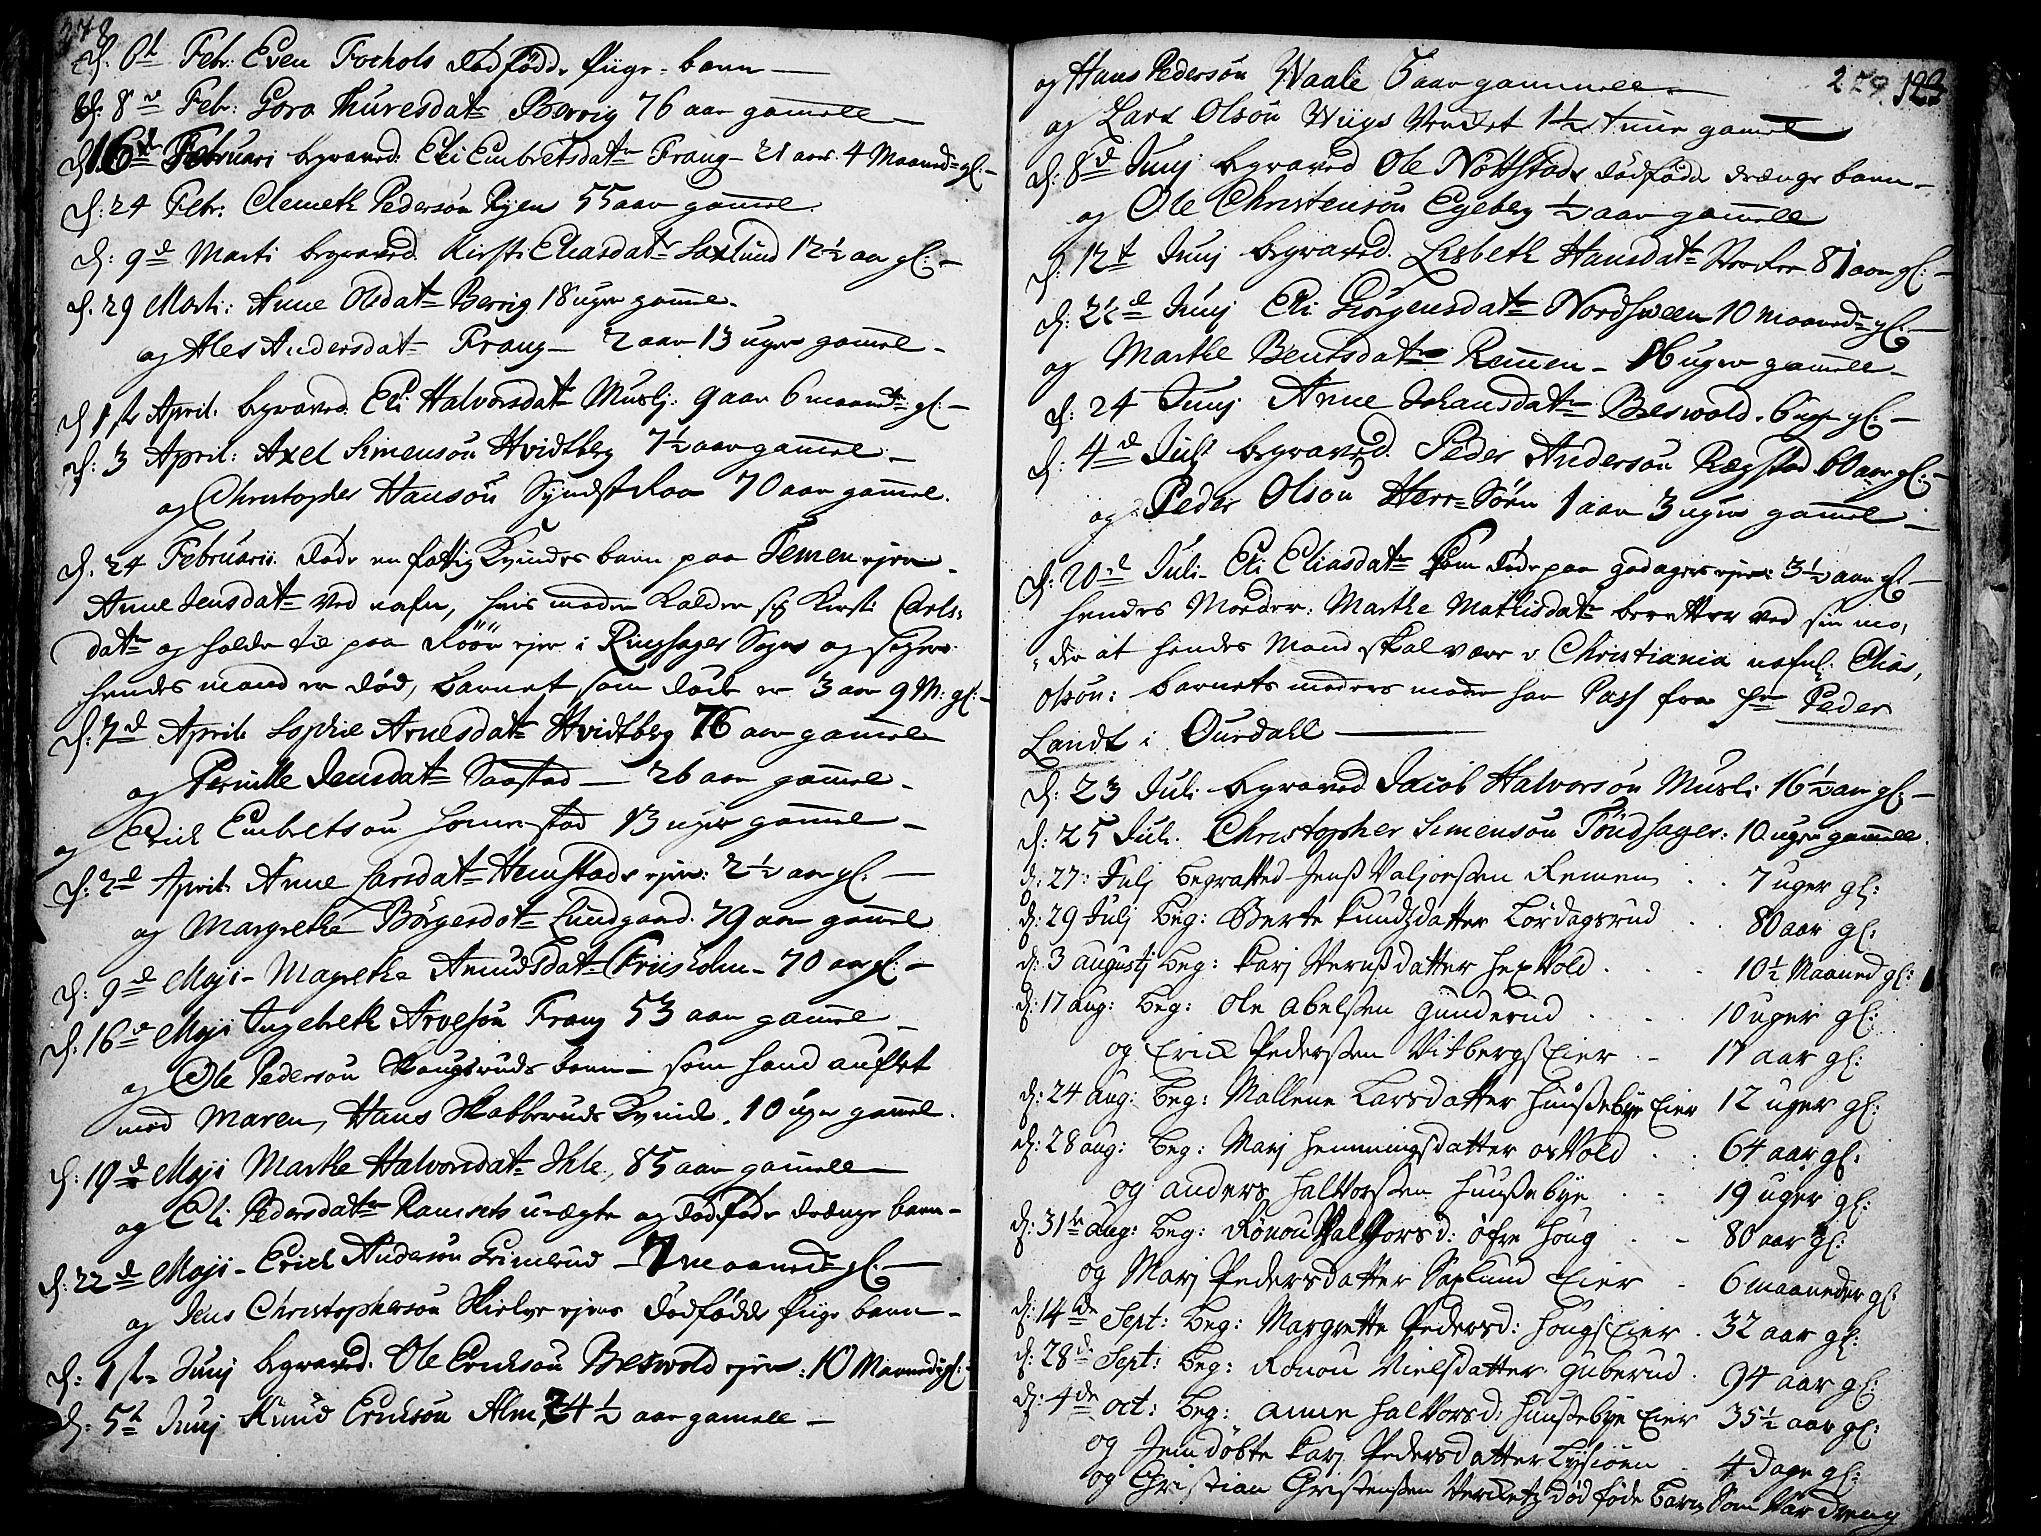 278
d: 6t Febr: Even Fochols dødfødde Pige-barn —
d: 8de Febr: Goro Thuresdatr Berrig 76 aar gamel —
d 16de Februari begraved Eli Embretsdatr Frang - 21 aar 4 Maaned gl: -
d: 24 Febr: Clemeth Pedersøn Ryen 55 aar gamel
d: 9de Marti begraved Kirsti Eliasdatr Saxlund 12½ aar gl: -
d. 29 Marti: Anne Olsdatr Berrig 18 uger gamel -
og Ales Andersdatr Frang - 2 aar 13 uger gamel -
d 1ste April begraved Eli Halvorsdatr Musli: 9 aar 6 maaneder gl: -
d: 3 April: Axel Simensøn Hvidtberg 7½ aar gamel -
og Christopher Hansøn 70 aar gamel.
d. 24 Februarii døde en fattig Kvindes barn paa Temen ejer
Anne Jensdatr ved nafn, hvis moder kalder sig Kirsti Carls-
datr og holder til paa Røør ejer i Ringsager Sogn og siger
hendes mand er død, barnet som døde er 3 aar 9 M: gl: -
d: 7de April Sophie Arnesdatr Hvidtberg 76 aar gamel
og Pernille Jensdatr Saastad — 26 aar gamel -
og Erich Embretsøn Homerstad 13 uger gamel -
d: 2de April Anne Larsdatr Hemstads ejer: 2½ aar gl: —
og Margrethe Børgesdatr Lundgaard. 79 aar gamel
d: 9de Maji - Magrethe Amundsdatr Friisholm - 70 aar gl: -
d: 16de Maji Ingebreth Arvesøn Frang 53 aar gamel -
og Ole Pedersøn Skougsruds barn - som hand auflet
med Maren, Hans Skabberuds Kvinde. 10 uger gamel.
d: 19de Maji Marthe Halvorsdatr Ihle, 85 aar gamel
og Eli Pedersdatr Ramsets u-ægte og dødføde drænge barn -
d: 22de Maji - Erich Andersøn Grimerud - 7 maaneder gl: —
og Jens Christophersøn Skielve ejers dødfødde Pige barn -
d: 1ste Junj begraved. Ole Erichsøn Beswold ejer: 10 Maaneder gl: -
d: 5t Junj Knud Erichsøn Alm 24½ aar gamel -
279. 122
og Hans Pedersøn Waale 5 aar gammel -
og Lars Olsøn Wiigs Verket 1½ time gamel
d: 8de Junj begraved Ole Nottstads dødfødde drænge barn -
og Ole Christensøn Egeberg ½ aar gamel
d: 12t Junj begraved. Lisbeth Hansdatr 81 aar gl: -
d: 22de Junj Eli Jørgensdatr Nordsween 10 maaneder gl: -
og Marthe Bentsdatr Remen - 16 uger gamel -
d: 24 Junj Anne Johansdatr Beswold. 6 uger gl: -
d: 4de Juli begraved Peder Andersøn Rægstad 60 aar gl: -
og Peder Olsøn Herr-Søen 1 aar 3 uger gamel -
d: 20de Juli - Eli Eliasdatr som døde paa godagers ejer: 3½ aar gl: -
hendes Moeder: Marthe Mathisdatr beretter ved sin mo,
der at hendes Mand skal være i Christiania nafnl. Elias,
Olsøn: barnets moders moder har Pass fra Hr Peder
Landt i Ourdall —
d: 23 Juli begraved Jacob Halvorsøn Musli 16½ aar gl: -
d: 25 Juli. Christopher Simensøn Tøndsager: 10 uger gamel.
d: 27: Julj begrafted Jenß Valjorßen Remen . . 7 uger gl:
d: 29 Julj beg: Berte Knudzdatter Lørdagsrud . . 80 aar gl:
d: 3 augustj beg: Karj datter hexVold . . . 10½ Maaned gl:
d: 17 aug: beg: Ole Abelßen Gunderud . . 10 uger gl:
og Erick Pederßen Vitbergs Eier . - 17 aar gl:
d: 24 aug: beg: Mallene Larsdatter Hunßebye Eier 12 uger gl:
d: 28 aug: beg: Marj hemmingsdatter osVold . . 64 aar gl:
og anders halVorßen hunßebye . - 19 uger gl:
d: 31te aug: beg: Rønou HalVorsd: øfre houg . - 80 aar gl:
og Marj Pedersdatter Saxlund Eier . 6 maaneder gl:
d: 14de Sept: beg: Margrette Pedersd: hougs Eier . 32 aar gl:
d: 28de Sept: beg: Ronou Nielsdatter Guberud . 94 aar gl:
d: 4de oct: beg: anne halVorsd: hunßebye Eier 35½ aar gl:
og Jemdøbte Karj Pedersdatter Lysiøen . 4 dage gl:
og Christian Christenßen Verketz død føde barn Som Var dreng